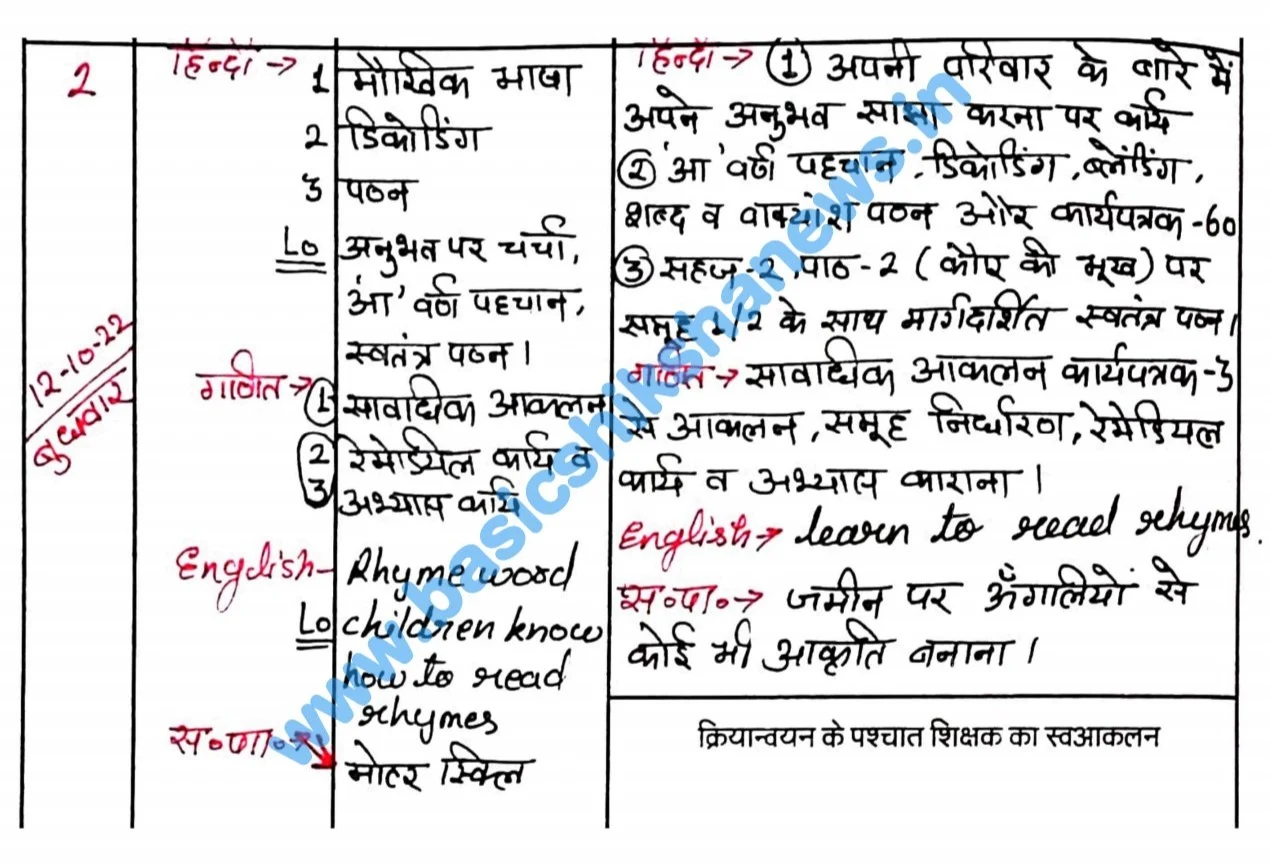 2
12-10-22
बुधवार
हिन्दी → 1 मौखिक भाषा
2 डिकोडिंग
3 पठन
Lo अनुभव पर चर्चा,
'आ' वर्ण पहचान,
स्वतंत्र पठन।
गणित → ① सावधिक आकलन
2 रेमेडियल कार्य व
3 अभ्यास कार्य
English- Rhyme word
Lo children know
how to read
rhymes
स॰पा॰→ मोटर स्किल
हिन्दी → ① अपनी परिवार के बारे में
अपने अनुभव साझा करना पर कार्य
② 'आ' वर्ण पहचान, डिकोडिंग, ब्लेंडिंग,
शब्द व वाक्यांश पठन और कार्यपत्रक-60
③ सहज-2, पाठ-2 (कौए की भूख) पर
समूह 1/2 के साथ मार्गदर्शित स्वतंत्र पठन।
गणित → सावधिक आकलन कार्यपत्रक-3
से आकलन, समूह निर्धारण, रेमेडियल
कार्य व अभ्यास काराना।
English → learn to read rhymes.
स॰पा॰→ जमीन पर अँगलियों से
कोई भी आकृति बनाना।
क्रियान्वयन के पश्चात शिक्षक का स्वआकलन
www.basicshikshanews.in